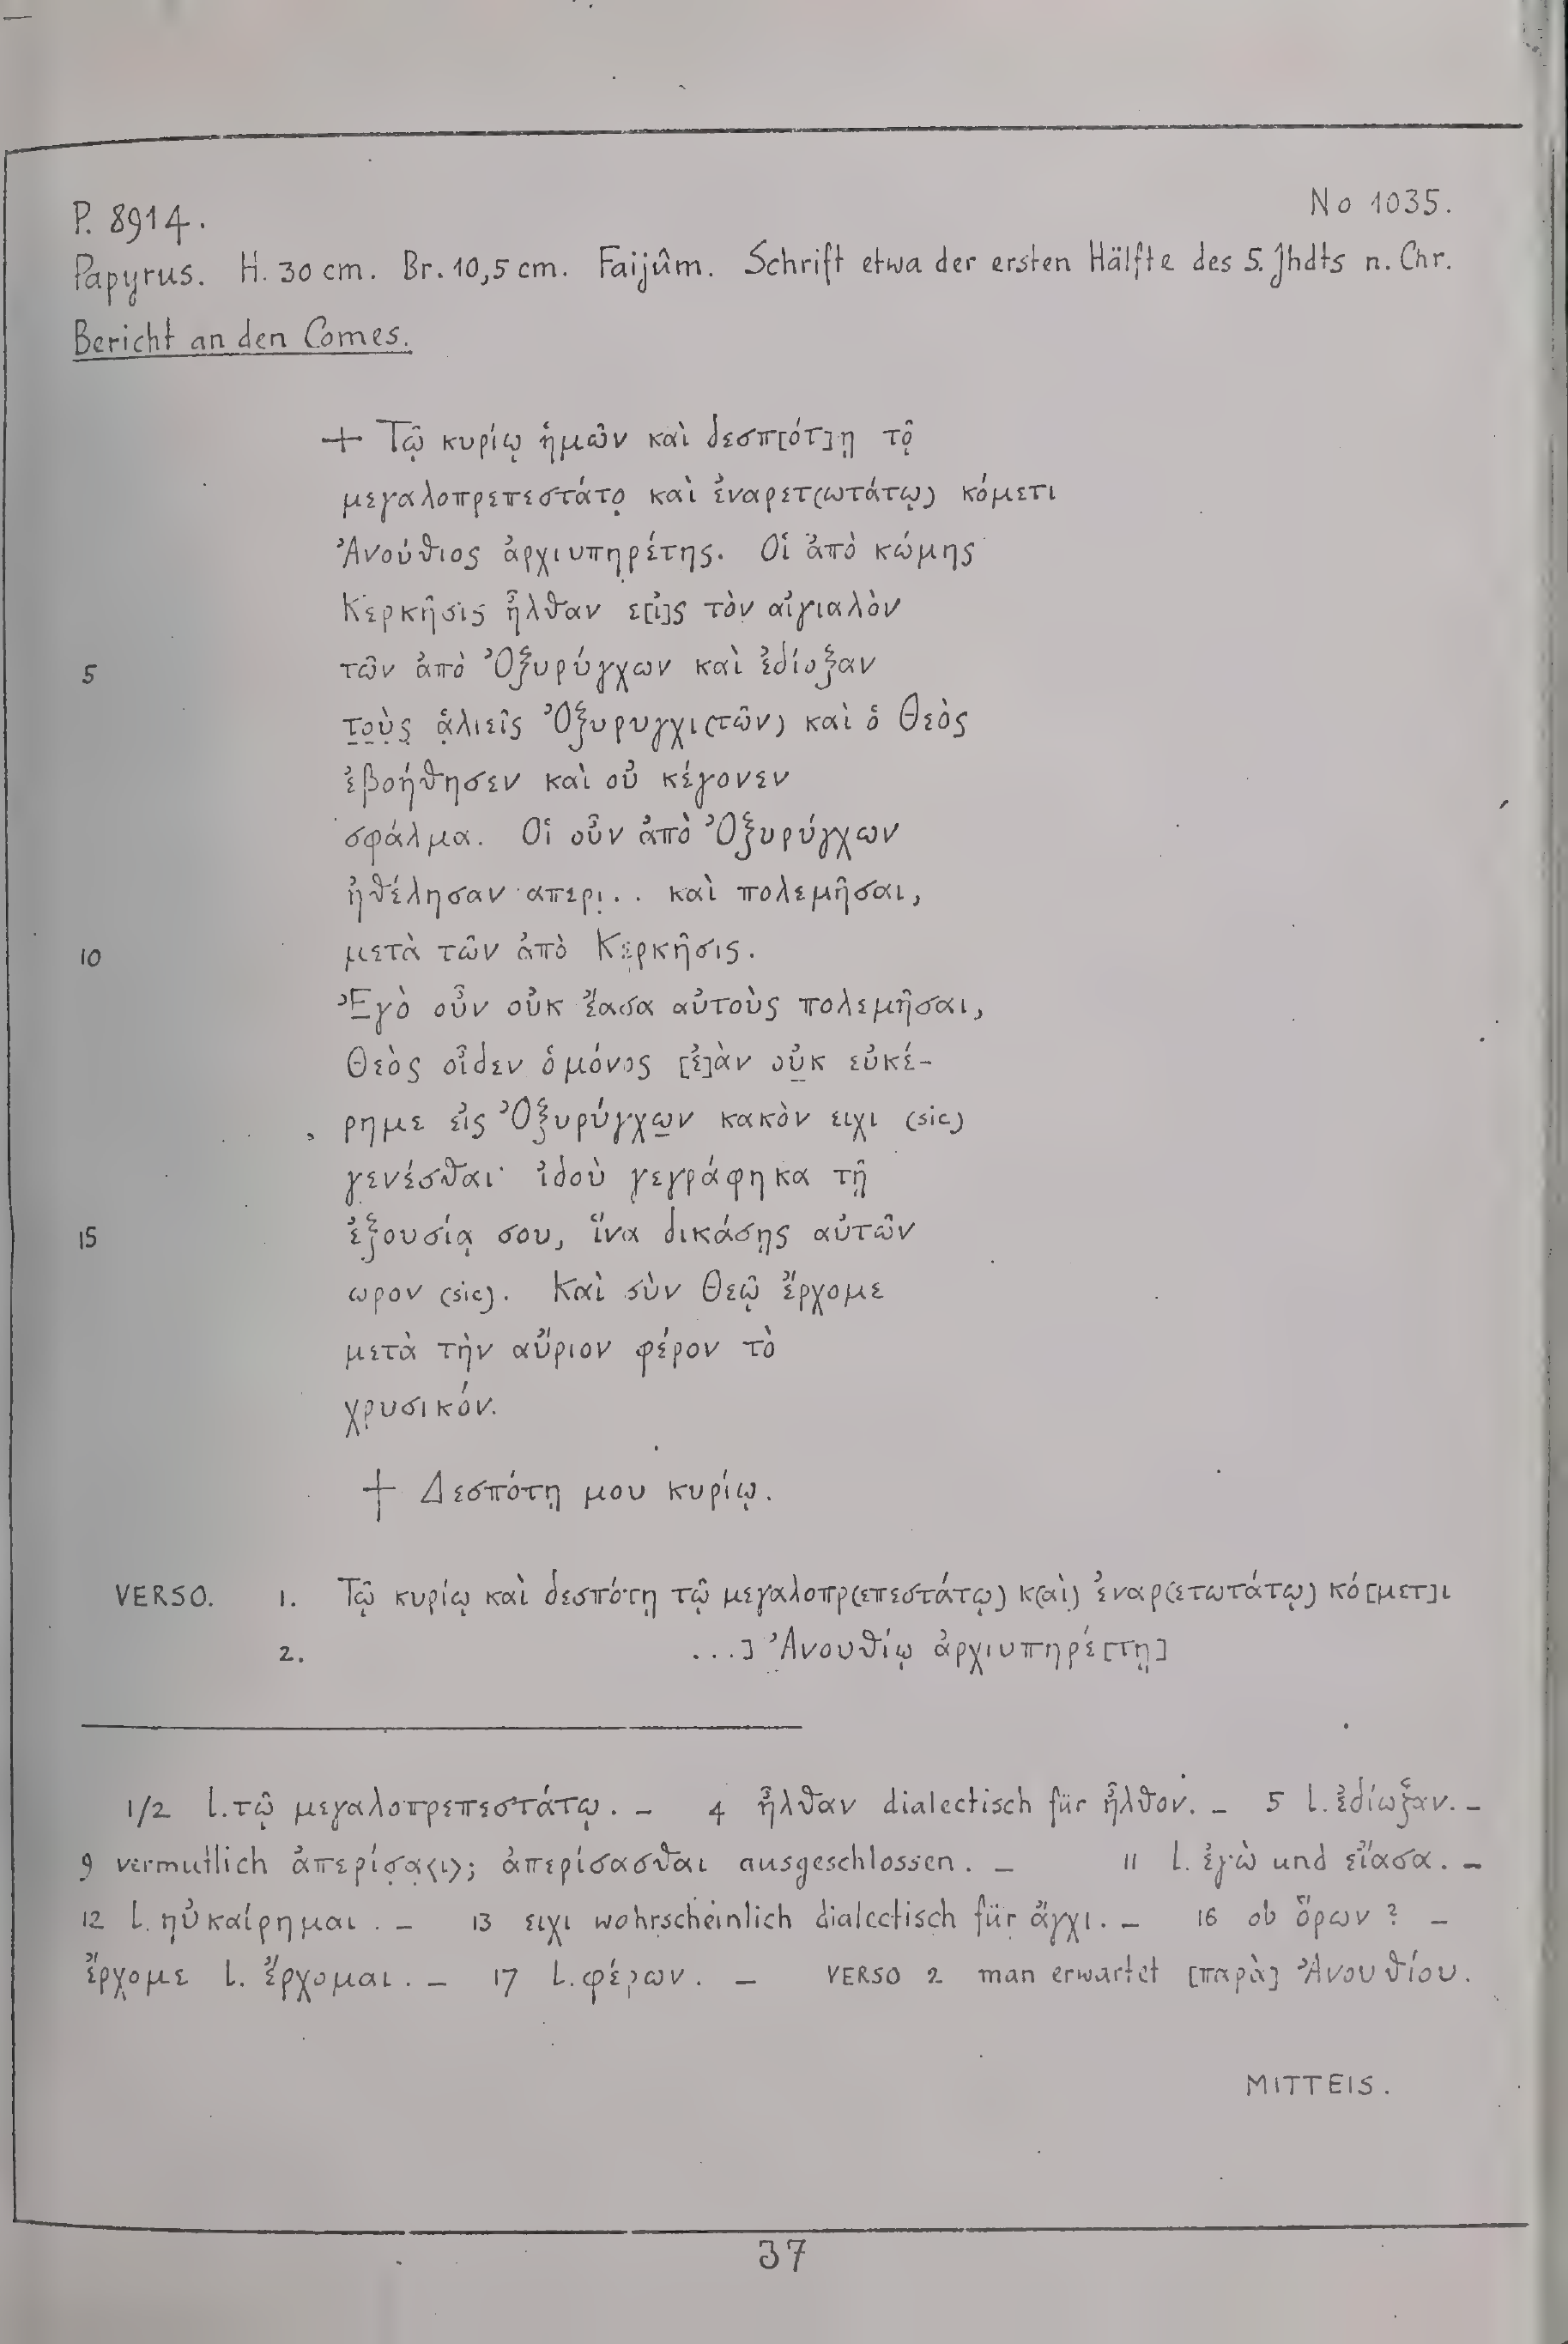 P. 8914.
No 1035.
Papyrus. H. 30 cm. Br. 10,5 cm. Faijûm. Schrift etwa der ersten Hälfte des 5. Jhdts n. Chr.
Bericht an den Comes.
+ Τῷ κυρίῳ ἡμῶν καὶ δεσπ[ότ]ῃ το̑͂
μεγαλοπρεπεστάτο̣ καὶ ἐναρετ(ωτάτῳ) κόμετι
Ἀνούθιος ἀρχιυπηρέτης. Οἱ ἀπὸ κώμης
Κερκῆσις ἦλθαν ε[ἰ]ς τὸν αἰγιαλὸν
5 τῶν ἀπὸ Ὀξυρύγχων καὶ ἐδίοξαν
τ̣ο̣ὺ̣ς̣ ἁ̣λιεῖς Ὀξυρυγχι(τῶν) καὶ ὁ Θεὸς
ἐβοήθησεν καὶ οὐ κέγονεν
σφάλμα. Οἱ οὖν ἀπὸ Ὀξυρύγχων
ἠθέλησαν απερι̣.. καὶ πολεμῆσαι,
10 μετὰ τῶν ἀπὸ Κε̣ρκῆσις.
Ἐγὸ οὖν οὐκ ἔασα αὐτοὺς πολεμῆσαι,
Θεὸς οἶδεν ὁ μόνος [ἐ]ὰν οὐ̣κ εὐκέ-
ρημε εἰς Ὀξυρύγχω̣ν κακὸν ειχι (sic)
γενέσθαι· ἰδοὺ γεγράφηκα τῇ
15 ἐξουσίᾳ σου, ἵνα δικάσῃς αὐτῶν
ωρον (sic). Καὶ σὺν Θεῷ ἔρχομε
μετὰ τὴν αὔριον φέρον τὸ
χρυσικόν.
+ Δεσπότῃ μου κυρίῳ.
VERSO. 1. Τῷ κυρίῳ καὶ δεσπότῃ τῷ μεγαλοπρ(επεστάτῳ) κ(αὶ) ἐναρ(ετωτάτῳ) κό[μετ]ι
2. ...] Ἀ̣νουθίῳ ἀρχιυπηρέ[τῃ]
1/2 l. τῷ μεγαλοπρεπεστάτῳ. – 4 ἦλθαν dialectisch für ἦλθον. – 5 l. ἐδίωξαν. –
9 vermutlich ἀπερίσ̣α̣<ι>; ἀπερίσασθαι ausgeschlossen. – 11 l. ἐγὼ und εἴασα. –
12 l. ηὐκαίρημαι. – 13 ειχι wohrscheinlich dialectisch für ἄγχι. – 16 ob ὅρων? –
ἔρχομε l. ἔρχομαι. – 17 l. φέρων. – VERSO 2 man erwartet [παρὰ] Ἀνουθίου.
MITTEIS.
37